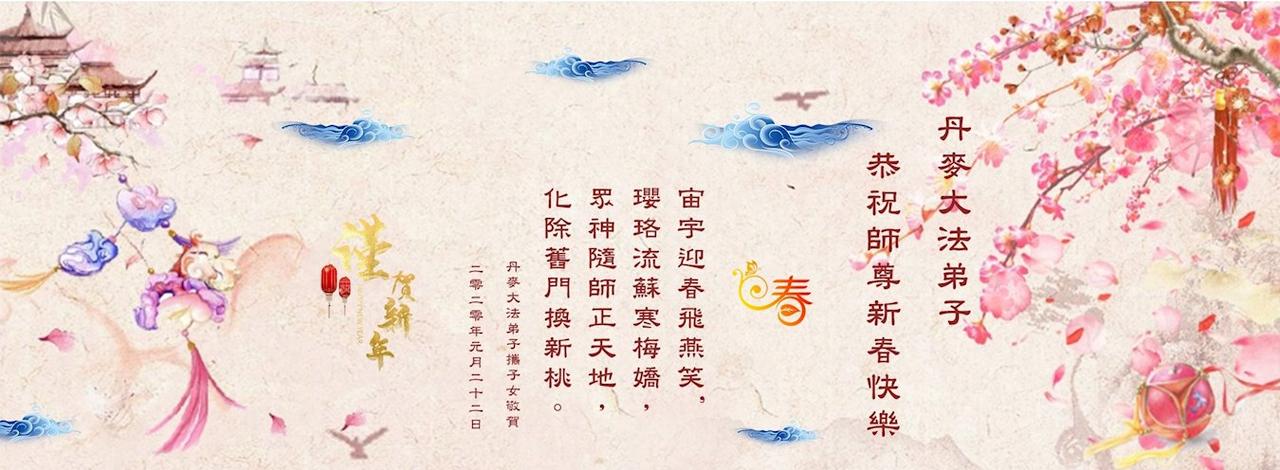 丹麥大法弟子
恭祝師尊新春快樂
春
宙宇迎春飛燕笑，
瓔珞流蘇寒梅嬌，
眾神隨師正天地，
化除舊門換新桃。
丹麥大法弟子攜子女敬賀
二零二零年元月二十二日
谨
贺新年